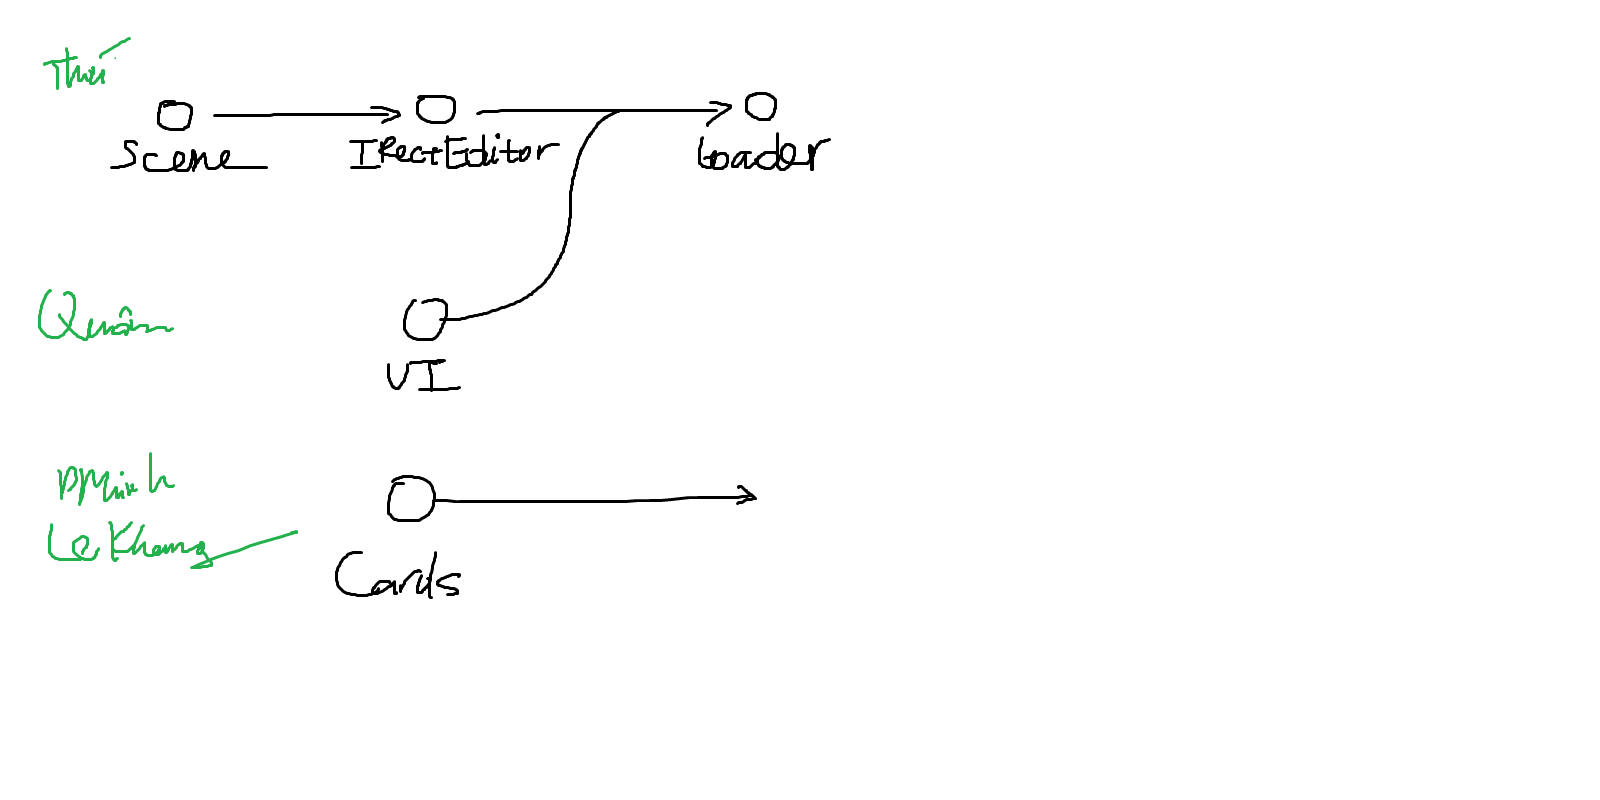 Thứ
Scene IRectEditor Loader
Quân
UI
DMinh
Le Khang
Cards